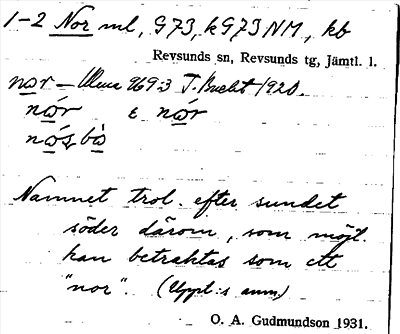 1-2 Nor ml, G73, kG73NM, kb
Revsunds sn, Revsunds tg, Jämtl. l.
nɷr – Ulma 269:3 T. Bucht 1920.
nɷ́r ε nɷ̀r
Namnet trol. efter sundet
söder därom, som möjl.
kan betraktas som ett
"nor". (Uppt:s anm)
O. A. Gudmundson 1931.